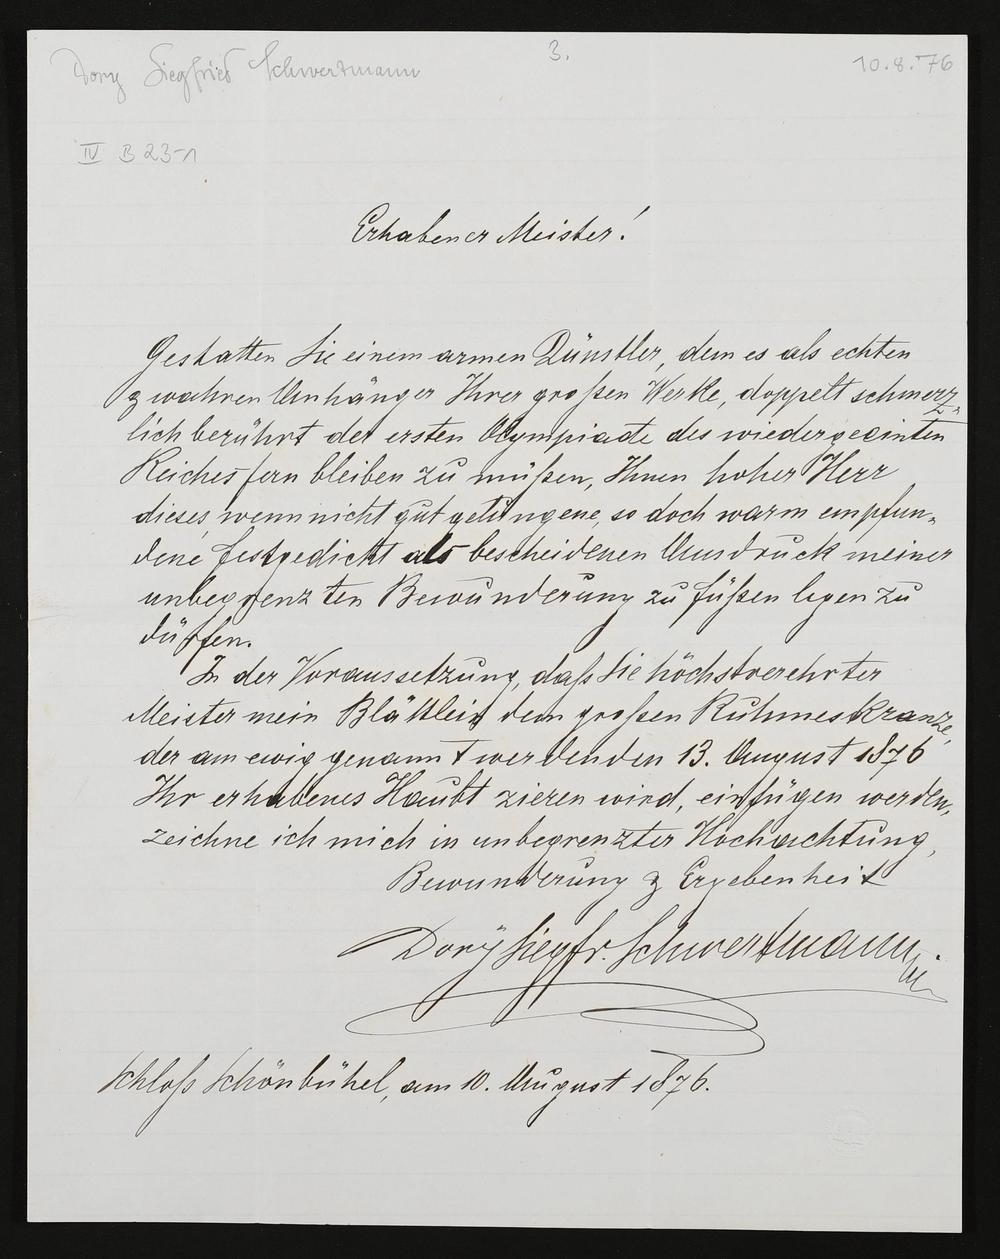 Dory Siegfried Schwertmann
3.
10.8.76
IV B 23-1
Erhabener Meister!
Gestatten Sie einem armen Künstler, dem es als echten
& wahren Anhänger Ihrer großen Werke, doppelt schmerz-
lich berührt der ersten Olympiade des wiedergeeinten
Reiches fern bleiben zu müßen, Ihnen hoher Herr
dieses wenn nicht gut gelungene, so doch warm empfun-
dene Festgedicht als bescheidenen Ausdruck meiner
unbegrenzten Bewunderung zu füßen legen zu
dürfen.
In der Voraussetzung, daß Sie höchstverehrter
Meister mein Blättlein dem großen Ruhmeskranze,
der am ewig genannt werdenden 13. August 1876
Ihr erhabenes Haubt zieren wird, einfügen werden,
zeichne ich mich in unbegrenzter Hochachtung,
Bewunderung & Ergebenheit
Dory Siegfr. Schwertmann
Schloß Schönbühel, am 10. August 1876.